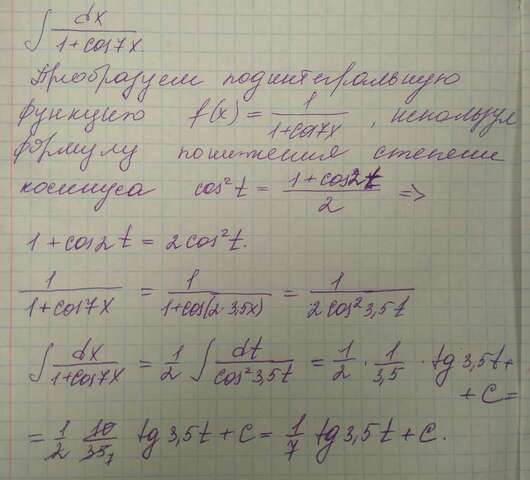 ∫ dx/(1+cos7x).
Преобразуем подинтегральную
функцию f(x) = 1/(1+cos7x), используя
формулу понижения степени
косинуса cos²t = (1+cos2t)/2 =>
1+cos2t = 2cos²t.
1/(1+cos7x) = 1/(1+cos(2·3,5x)) = 1/(2cos²3,5t)
∫ dx/(1+cos7x) = 1/2 ∫ dt/(cos²3,5t) = 1/2 · 1/3,5 · tg 3,5t +
+ C =
= 1/2 10/35 7 tg 3,5t + C = 1/7 tg 3,5t + C.